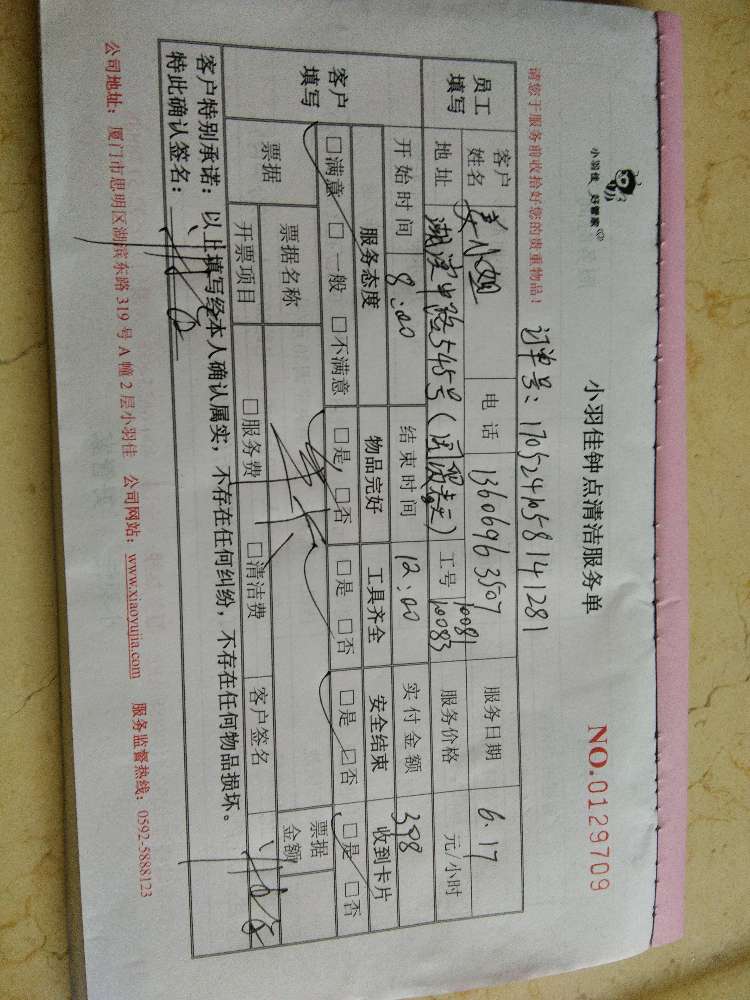 小羽佳 好管家
小羽佳钟点清洁服务单
NO.0129709
请您于服务前收拾好您的贵重物品!
订单号:
员工填写 客户姓名 小姐 电话 13606963507 服务日期 6.17
地址 545号 工号 10081 10083 服务价格 元/小时
开始时间 8:00 结束时间 12:00 实付金额 398
客户填写 服务态度 物品完好 工具齐全 安全结束 收到卡片
□满意 □一般 □不满意 □是 □否 □是 □否 □是 □否 □是 □否
票据 票据名称 票据金额
开票项目 □服务费 □清洁费 客户签名
客户特别承诺:以上填写经本人确认属实,不存在任何纠纷,不存在任何物品损坏。
特此确认签名:
公司地址:厦门市思明区湖滨东路319号A幢2层小羽佳 公司网站:www.xiaoyujia.com 服务监督热线:0592-5888123